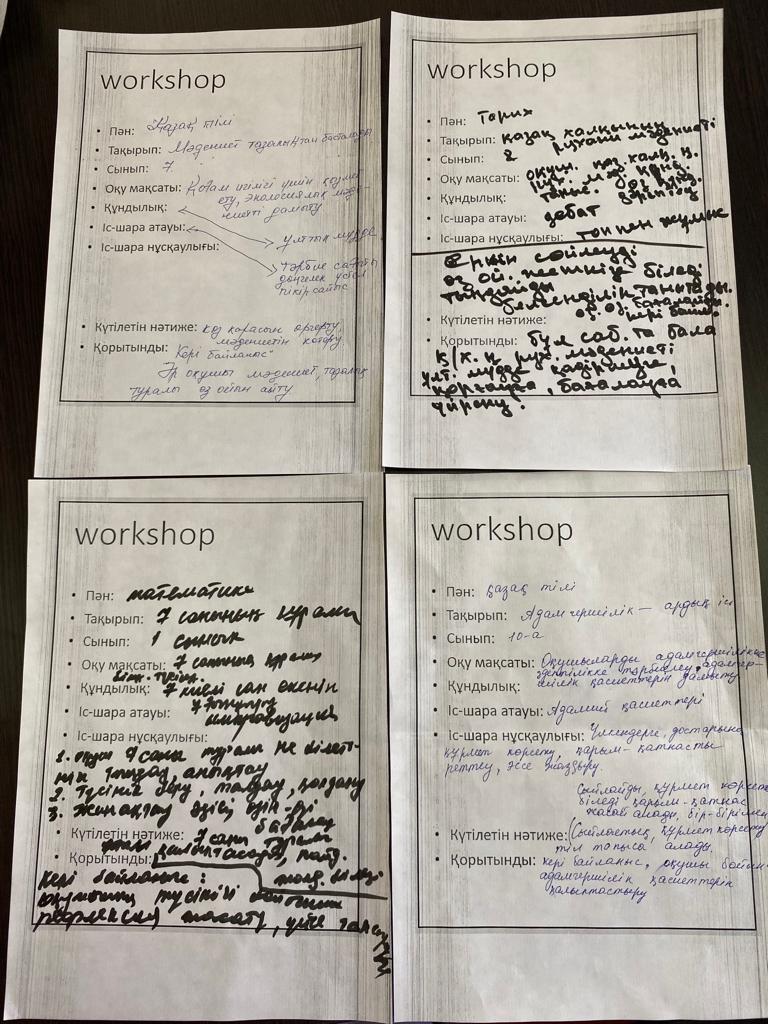 workshop
• Пән: Қазақ тілі
• Тақырып: Мәдениет тазалықтан басталады
• Сынып: 7.
• Оқу мақсаты: Қоғам игілігі үшін қызмет
ету, экологиялық мәде-
ниетті дамыту
• Құндылық:
• Іс-шара атауы:
ұлттық мүдде
• Іс-шара нұсқаулығы:
тәрбие сағаты
дөңгелек үстел
пікірсайыс
• Күтілетін нәтиже: көз қарасын өзгерту,
мәдениетін көтеру
• Қорытынды: Кері байланыс"
Әр оқушы мәдениет, тазалық
туралы өз ойын айту
workshop
• Пән: Тарих
• Тақырып: қазақ халқының
рухани мәдениеті
• Сынып: 2
• Оқу мақсаты: оқуш. қаз. халқ. қ.
рух. мәд. құнд.
• Құндылық:
• Іс-шара атауы: дебат
• Іс-шара нұсқаулығы: топпен жұмыс
Еркін сөйлеуді
өз ой. жеткізіп біледі
тыңдайды
белсенділік танытады.
өз. өз. бағалайды.
• Күтілетін нәтиже: кері байл.
• Қорытынды: бұл саб. та бала
қ/х. ң рух. мәдениеті
ұлт. мүдде қадірлеуге,
қорғауға, бағалауға
үйрену.
workshop
• Пән: математика
• Тақырып: 7 санының құрамы
• Сынып: 1 сынып
• Оқу мақсаты: 7 санының құрамын
біл. түсін.
• Құндылық: 7 киелі сан екенін
• Іс-шара атауы: 7
импровизация
• Іс-шара нұсқаулығы:
1. оқушы 7 саны туралы не білет-
нін тыңдау, анықтау
2. Түсінік беру, талдау, қолдану
3. Жинақтау өзін өзі
бағалау
• Күтілетін нәтиже: 7 саны туралы
ұғымы қалыптасуда, пайд.
• Қорытынды: толд. біледі
кері байланыс:
оқушының түсінігі бойынша
рефлексия жасату, үйге тапсырма
workshop
• Пән: қазақ тілі
• Тақырып: Адамгершілік — ардың ісі
• Сынып: 10-а
• Оқу мақсаты: Оқушыларды адамгершілікке
әдептілікке тәрбиелеу, адамгер-
• Құндылық: шілік қасиеттерін дамыту
• Іс-шара атауы: Адами қасиеттері
• Іс-шара нұсқаулығы: Үлкендерге, достарына
құрмет көрсету, қарым-қатнасты
реттеу, эссе жаздыру.
Сыйлайды, құрмет көрсете
біледі қарым-қатнас
жасай алады, бір-бірімен
• Күтілетін нәтиже: (Сыйластық, құрмет көрсету)
тіл табыса алады.
• Қорытынды: кері байланыс, оқушы бойын-
адамгершілік қасиеттерін
қалыптастыру